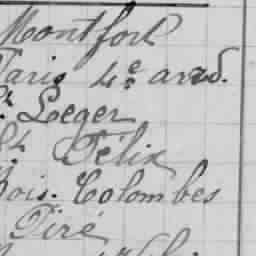 Montfort
Paris 4e arrd.
St Leger
St Félix
Bois-Colombes
Tiré